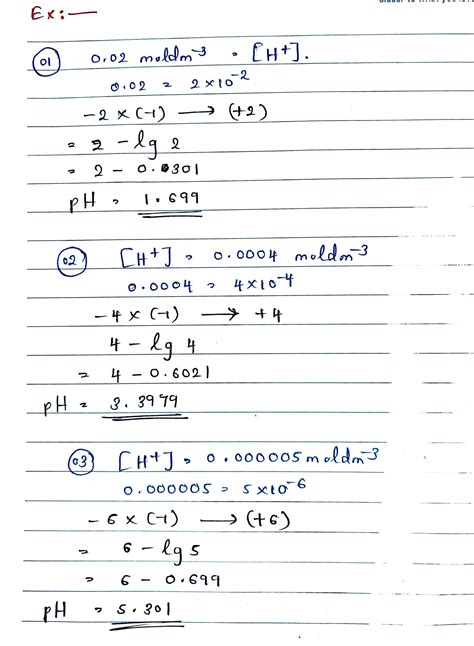 Ex:—
01 0.02 moldm⁻³ = [H⁺].
0.02 = 2×10⁻²
-2 × (-1) → (+2)
= 2 - lg 2
= 2 - 0.0301
pH = 1.699
02 [H⁺] = 0.0004 moldm⁻³
0.0004 = 4×10⁻⁴
-4 × (-1) → +4
4 - lg 4
= 4 - 0.6021
pH = 3.3979
03 [H⁺] = 0.000005 moldm⁻³
0.000005 = 5×10⁻⁶
-6 × (-1) → (+6)
= 6 - lg 5
= 6 - 0.699
pH = 5.301